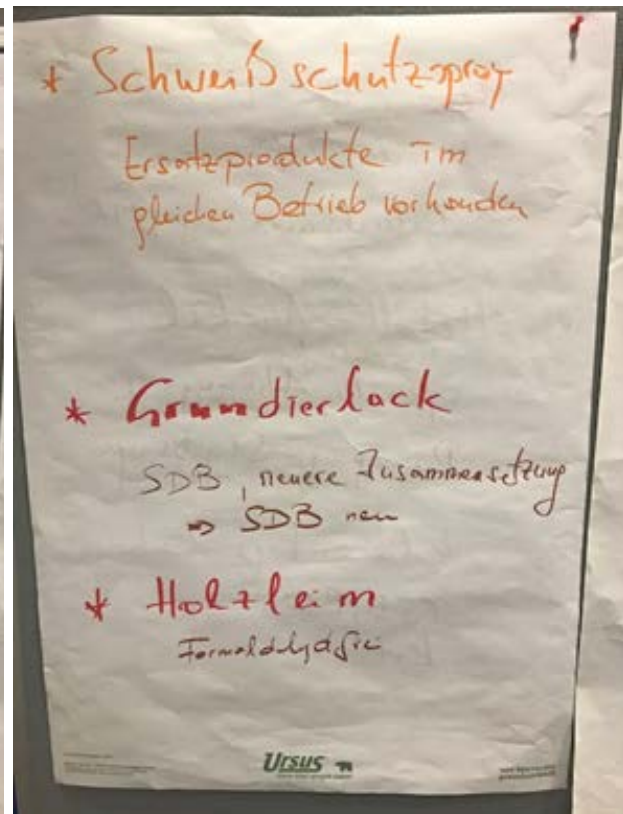 * Schweißschutzspray
Ersatzprodukte im
gleichen Betrieb vorhanden
* Grundierlack
SDB, neuere Zusammensetzung
⇒ SDB neu
* Holzleim
Formaldehydfrei
Ursus